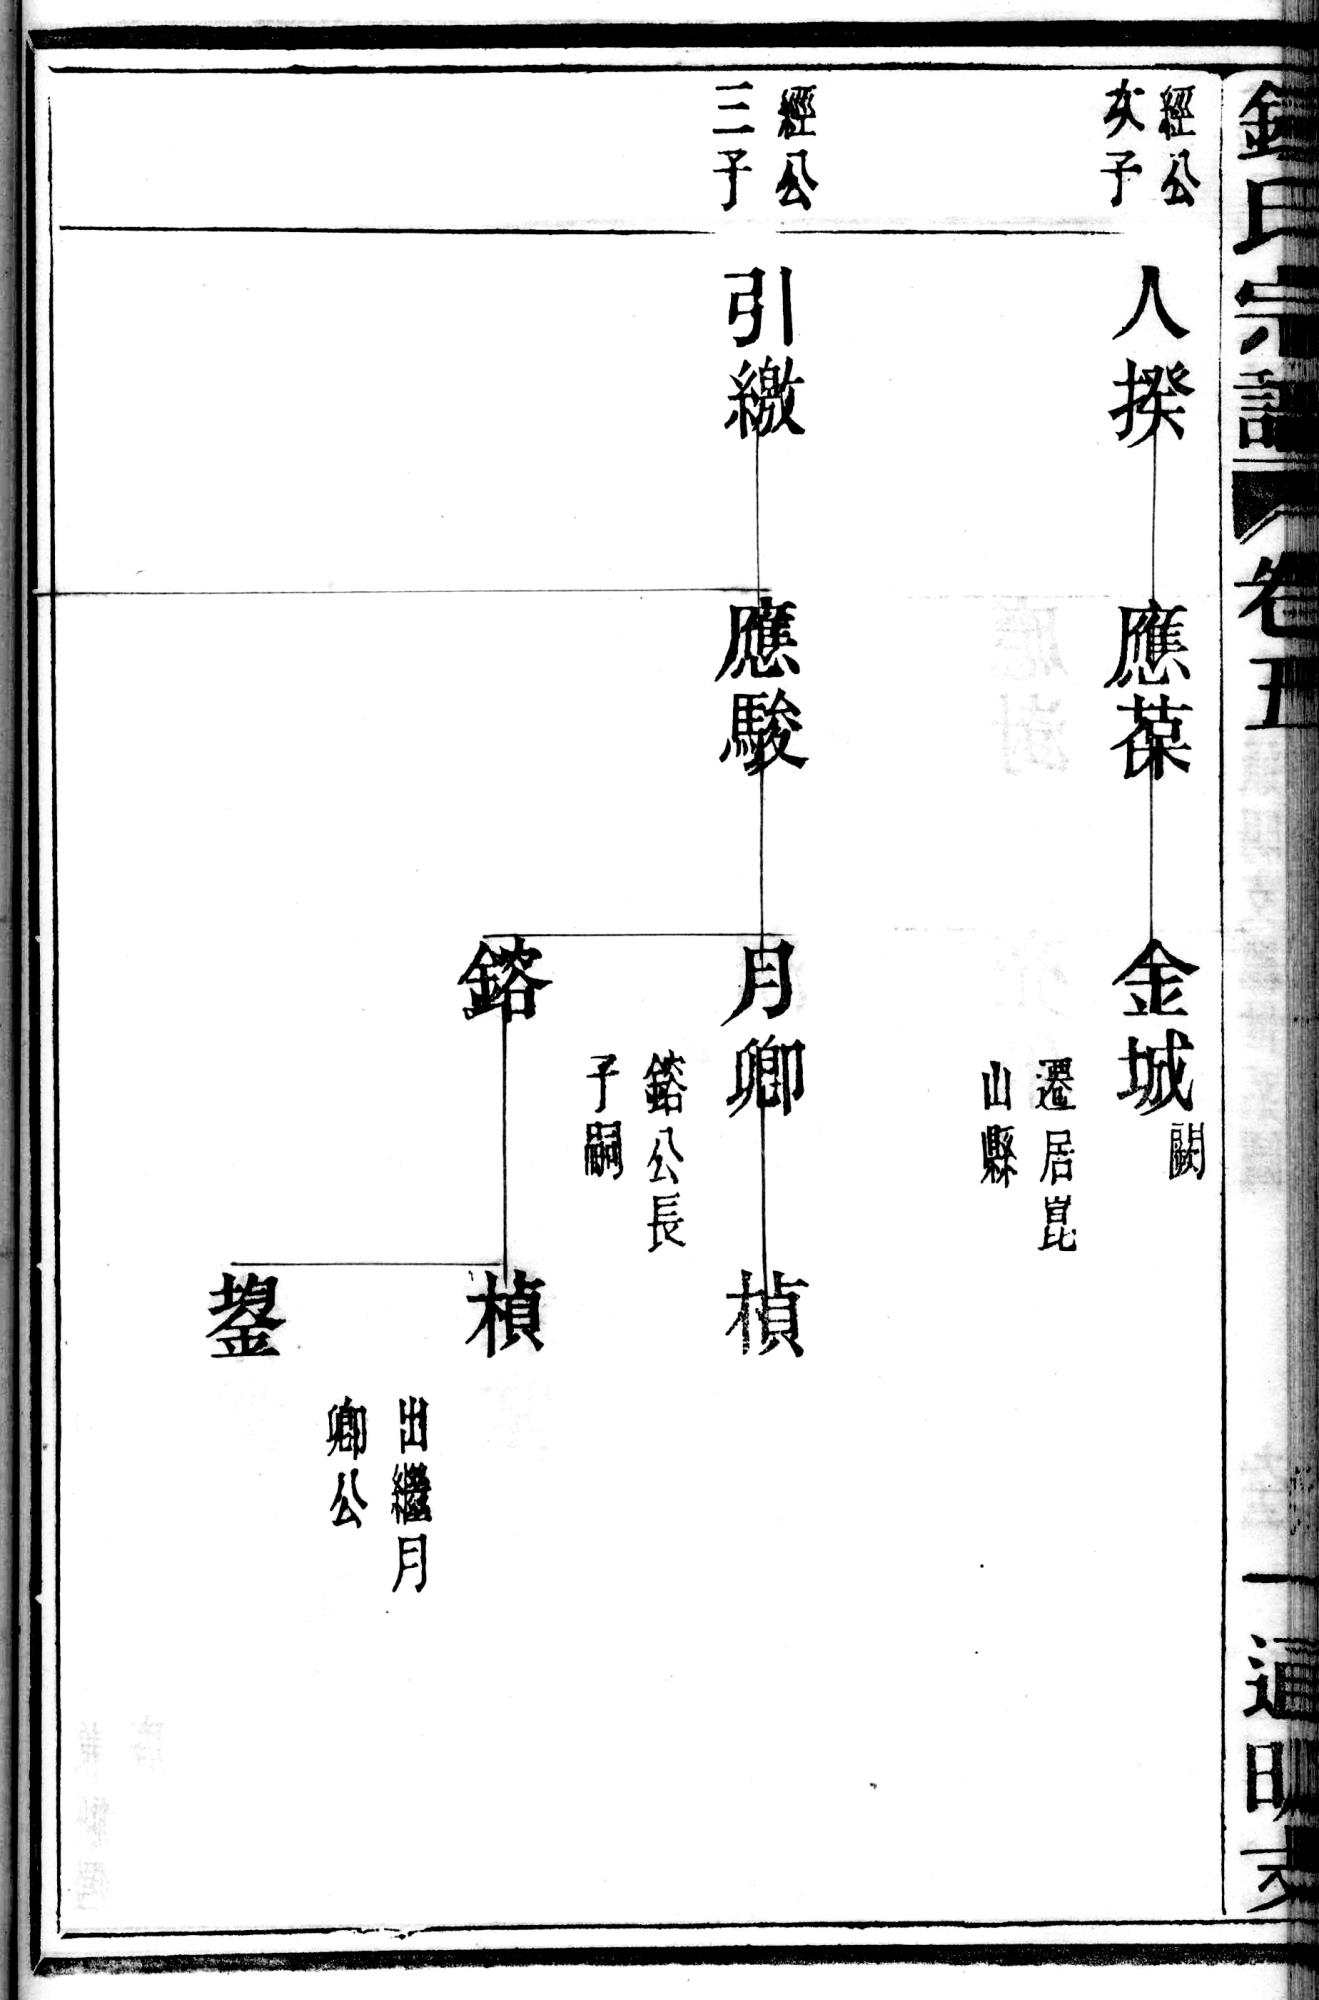 氏宗譜
卷五
一
通明支
經公
次子
人揆
應葆
金城
闕
遷居崑
山縣
經公
三子
引繳
應駿
月卿
鎔公長
子嗣
楨
鎔
楨
出繼月
卿公